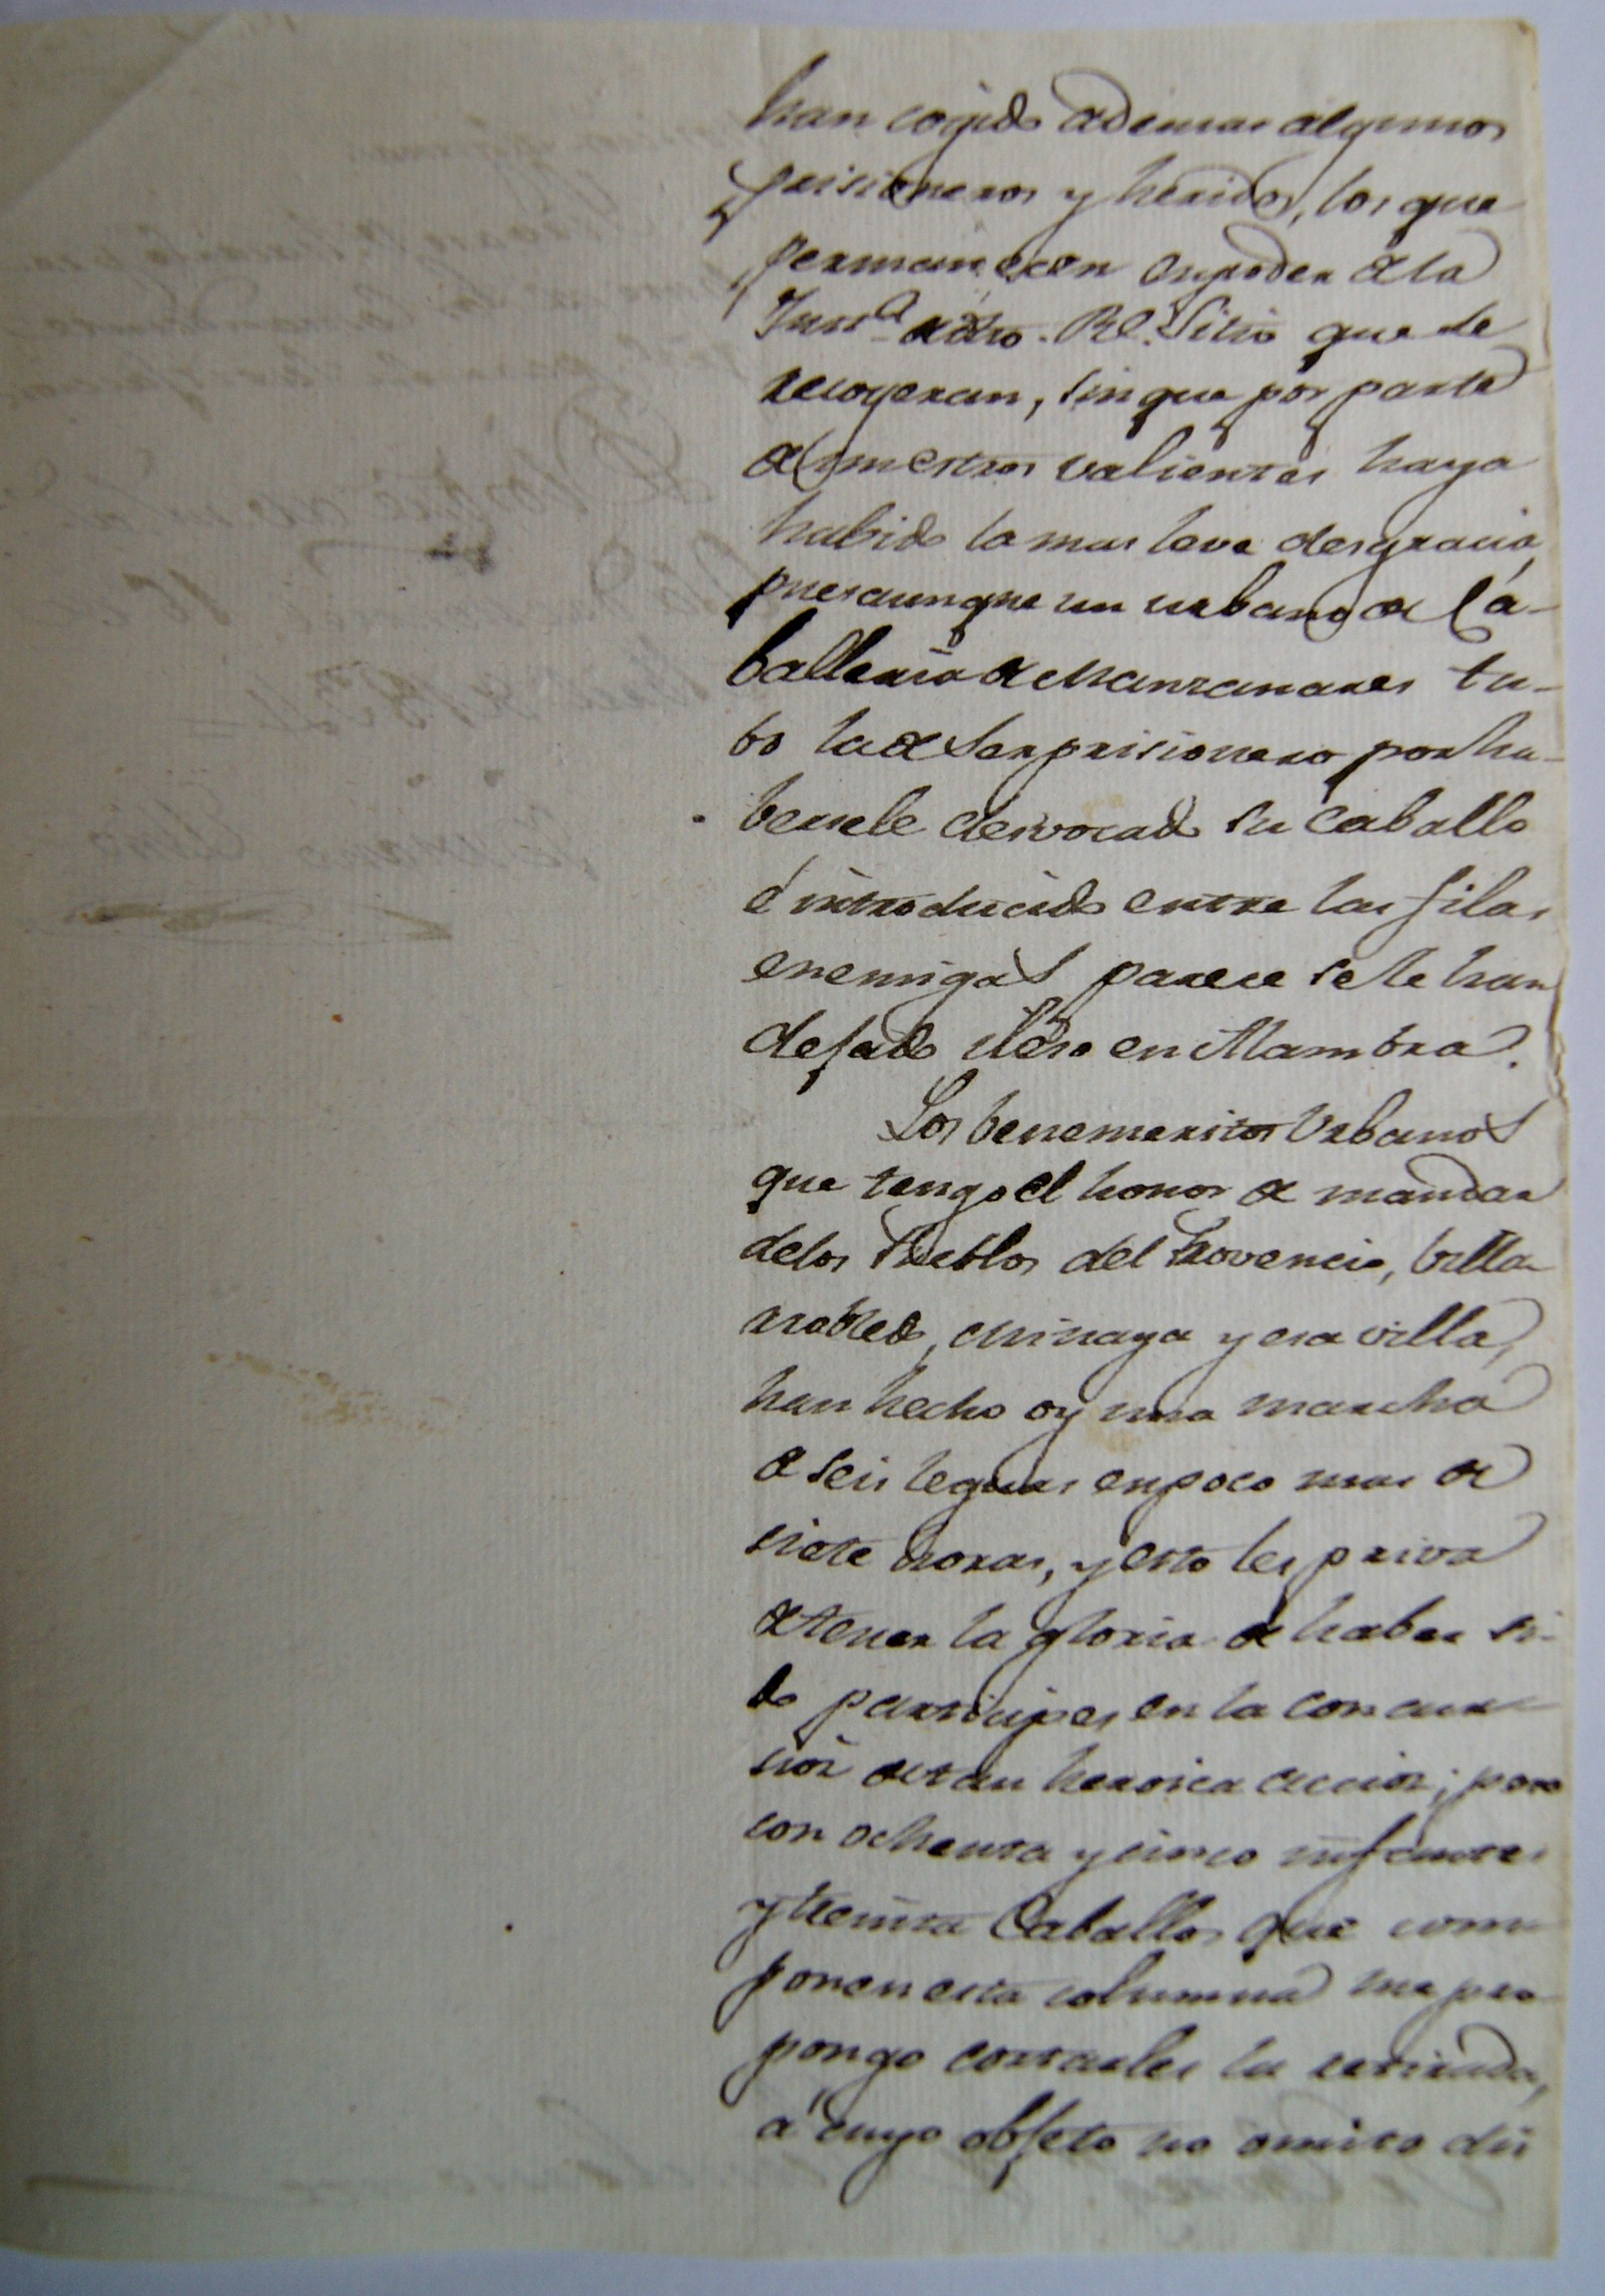 han cojido ademas algunos
prisioneros y heridos, los que
permanecen en poder de la
Just.ª de dho. Rl. Sitio que se
recoyeran, sin que por parte
de nuestros valientes haya
habido la mas leve desgracia,
pues aunque un urbano de Cá-
balleria de Manzanares tu-
bo la de ser prisionero por ha-
bersele desvocado su caballo
é introducido entre las filas
enemigas parece se le han
dejado ileso en Alambra.
Los benemeritos Urbanos
que tengo el honor de mandar
de los Pueblos del Provencio, Villa
rrobledo, Minaya y esa villa,
han hecho oy una marcha
de seis leguas en poco mas de
siete horas, y esto les priva
de tener la gloria de haber si-
do participes en la
de tan heroica accion; pero
con ochenta y cinco infantes
y treinta Caballos que com
ponen esta columna me pro
pongo cortarles la retirada,
á cuyo objeto no omito dili